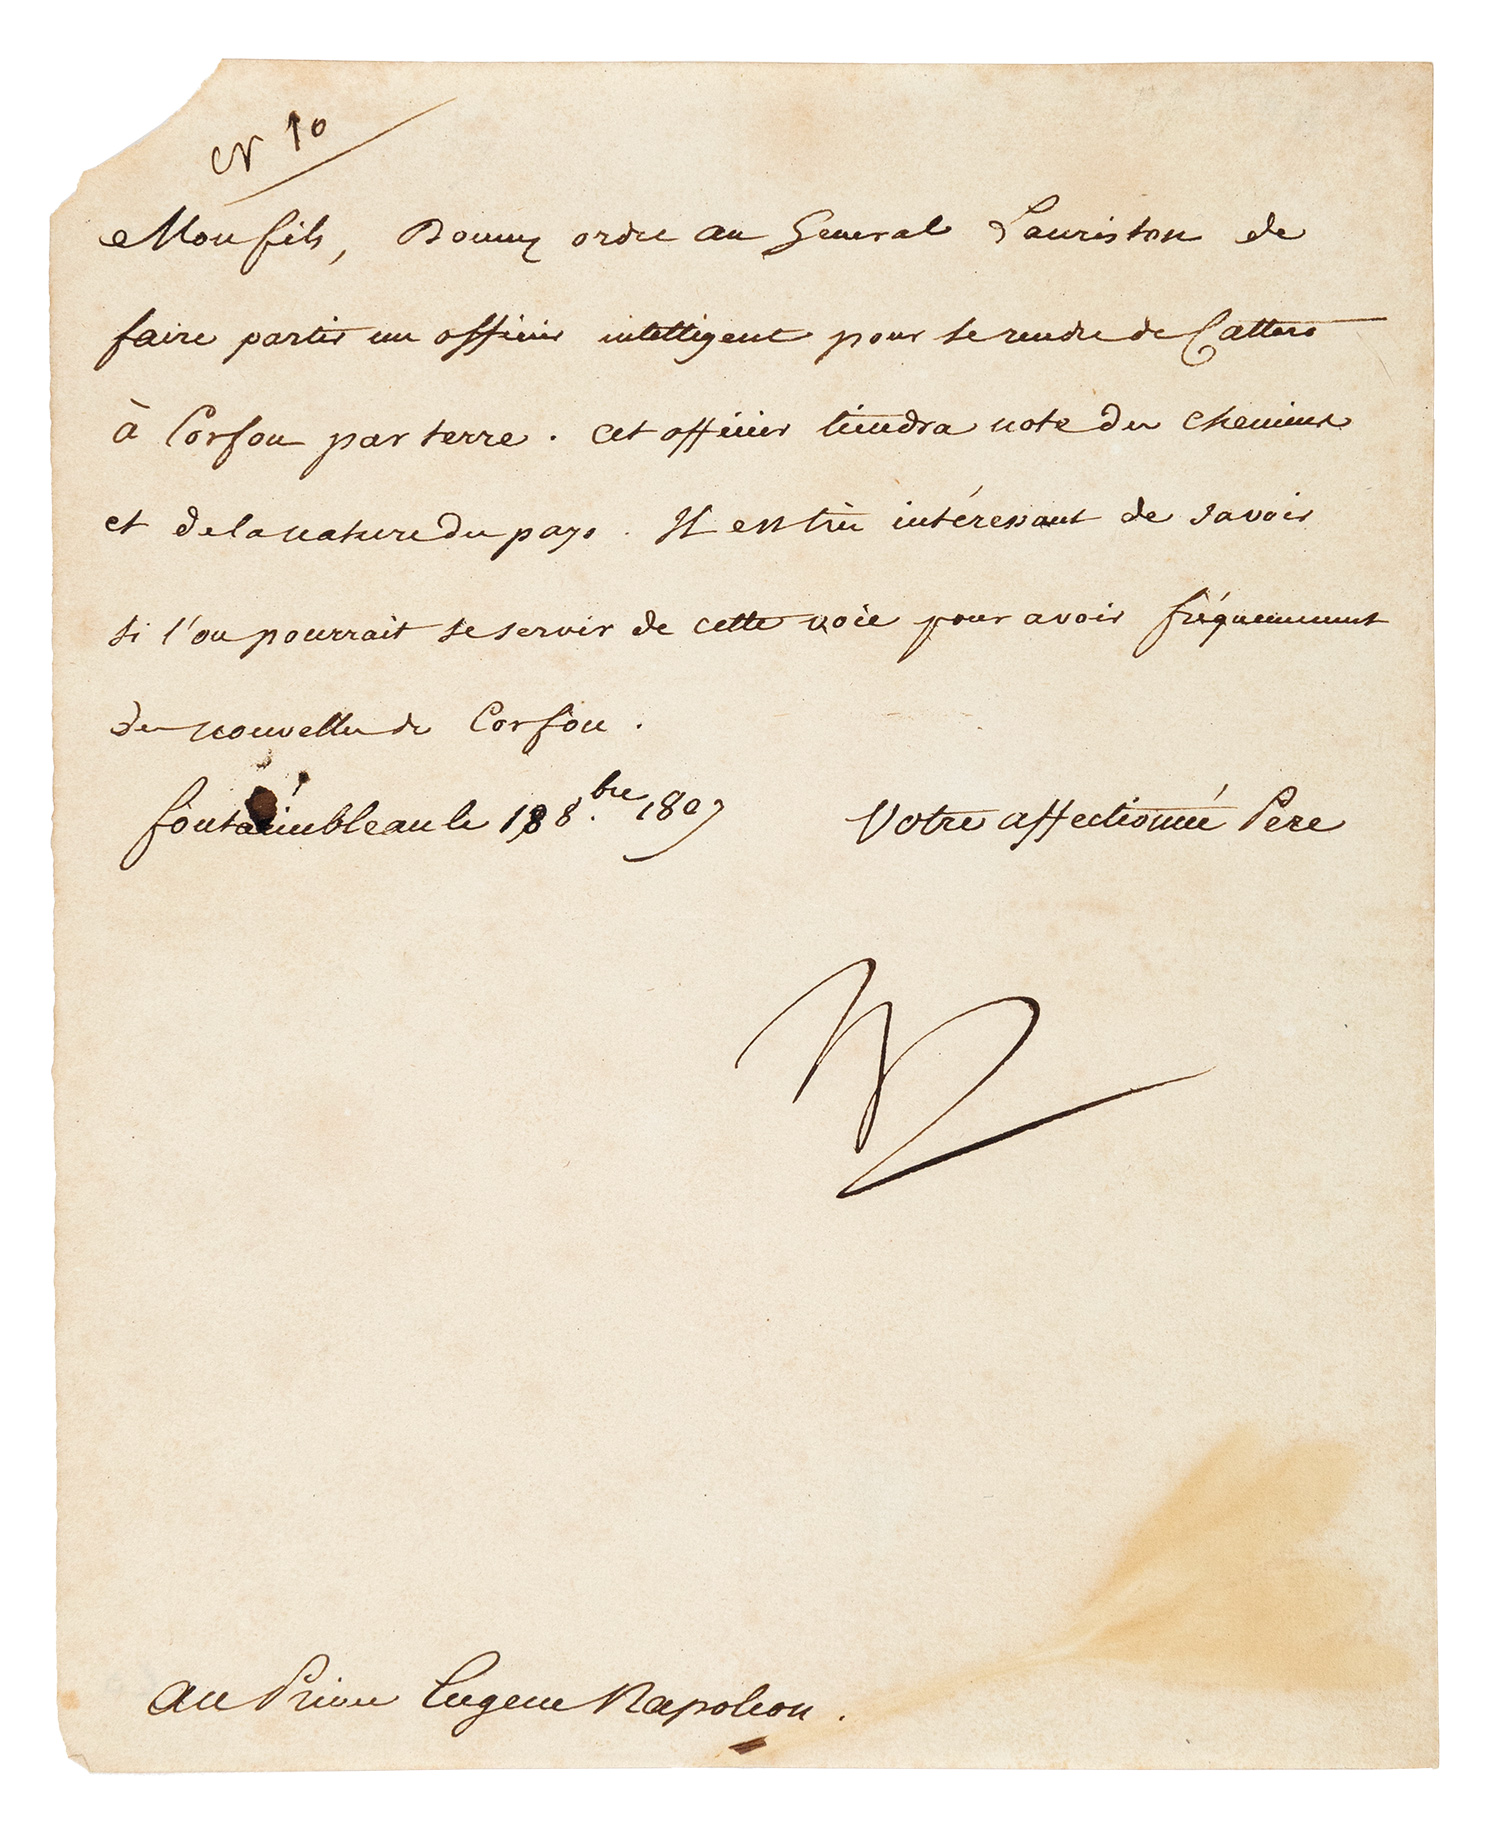 N 10
Mon fils, Donnez ordre au Général Lauriston de
faire partir un officier intelligent pour se rendre de Cattaro
à Corfou par terre. cet officier tiendra note des chemins
et de la nature du pays. Il est très intéressant de savoir
si l'on pourrait se servir de cette voie pour avoir fréquemment
des nouvelles de Corfou.
fontainebleau le 18 8.bre 1807 Votre affectionné Père
Au Prince Eugene Napoléon.